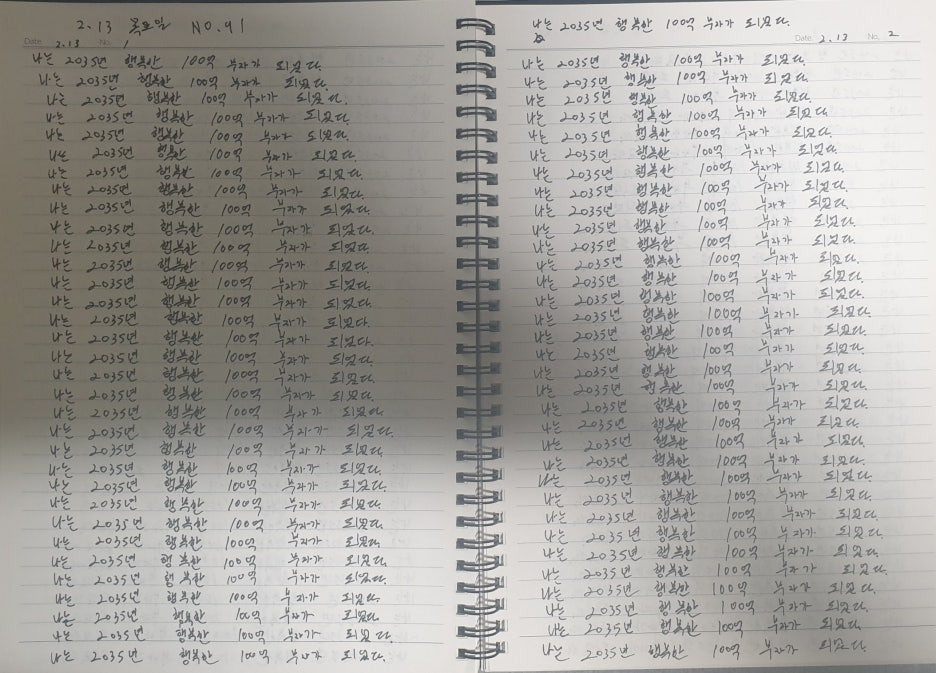 2.13 목요일 NO.91
Date 2.13 No. 1
나는 2035년 행복한 100억 부자가 되었다.
나는 2035년 행복한 100억 부자가 되었다.
나는 2035년 행복한 100억 부자가 되었다.
나는 2035년 행복한 100억 부자가 되었다.
나는 2035년 행복한 100억 부자가 되었다.
나는 2035년 행복한 100억 부자가 되었다.
나는 2035년 행복한 100억 부자가 되었다.
나는 2035년 행복한 100억 부자가 되었다.
나는 2035년 행복한 100억 부자가 되었다.
나는 2035년 행복한 100억 부자가 되었다.
나는 2035년 행복한 100억 부자가 되었다.
나는 2035년 행복한 100억 부자가 되었다.
나는 2035년 행복한 100억 부자가 되었다.
나는 2035년 행복한 100억 부자가 되었다.
나는 2035년 행복한 100억 부자가 되었다.
나는 2035년 행복한 100억 부자가 되었다.
나는 2035년 행복한 100억 부자가 되었다.
나는 2035년 행복한 100억 부자가 되었다.
나는 2035년 행복한 100억 부자가 되었다.
나는 2035년 행복한 100억 부자가 되었다.
나는 2035년 행복한 100억 부자가 되었다.
나는 2035년 행복한 100억 부자가 되었다.
나는 2035년 행복한 100억 부자가 되었다.
나는 2035년 행복한 100억 부자가 되었다.
나는 2035년 행복한 100억 부자가 되었다.
나는 2035년 행복한 100억 부자가 되었다.
나는 2035년 행복한 100억 부자가 되었다.
나는 2035년 행복한 100억 부자가 되었다.
나는 2035년 행복한 100억 부자가 되었다.
나는 2035년 행복한 100억 부자가 되었다.
나는 2035년 행복한 100억 부자가 되었다.
나는 2035년 행복한 100억 부자가 되었다.
나는 2035년 행복한 100억 부자가 되었다.
나는 2035년 행복한 100억 부자가 되었다.
Date 2.13 No. 2
나는 2035년 행복한 100억 부자가 되었다.
나는 2035년 행복한 100억 부자가 되었다.
나는 2035년 행복한 100억 부자가 되었다.
나는 2035년 행복한 100억 부자가 되었다.
나는 2035년 행복한 100억 부자가 되었다.
나는 2035년 행복한 100억 부자가 되었다.
나는 2035년 행복한 100억 부자가 되었다.
나는 2035년 행복한 100억 부자가 되었다.
나는 2035년 행복한 100억 부자가 되었다.
나는 2035년 행복한 100억 부자가 되었다.
나는 2035년 행복한 100억 부자가 되었다.
나는 2035년 행복한 100억 부자가 되었다.
나는 2035년 행복한 100억 부자가 되었다.
나는 2035년 행복한 100억 부자가 되었다.
나는 2035년 행복한 100억 부자가 되었다.
나는 2035년 행복한 100억 부자가 되었다.
나는 2035년 행복한 100억 부자가 되었다.
나는 2035년 행복한 100억 부자가 되었다.
나는 2035년 행복한 100억 부자가 되었다.
나는 2035년 행복한 100억 부자가 되었다.
나는 2035년 행복한 100억 부자가 되었다.
나는 2035년 행복한 100억 부자가 되었다.
나는 2035년 행복한 100억 부자가 되었다.
나는 2035년 행복한 100억 부자가 되었다.
나는 2035년 행복한 100억 부자가 되었다.
나는 2035년 행복한 100억 부자가 되었다.
나는 2035년 행복한 100억 부자가 되었다.
나는 2035년 행복한 100억 부자가 되었다.
나는 2035년 행복한 100억 부자가 되었다.
나는 2035년 행복한 100억 부자가 되었다.
나는 2035년 행복한 100억 부자가 되었다.
나는 2035년 행복한 100억 부자가 되었다.
나는 2035년 행복한 100억 부자가 되었다.